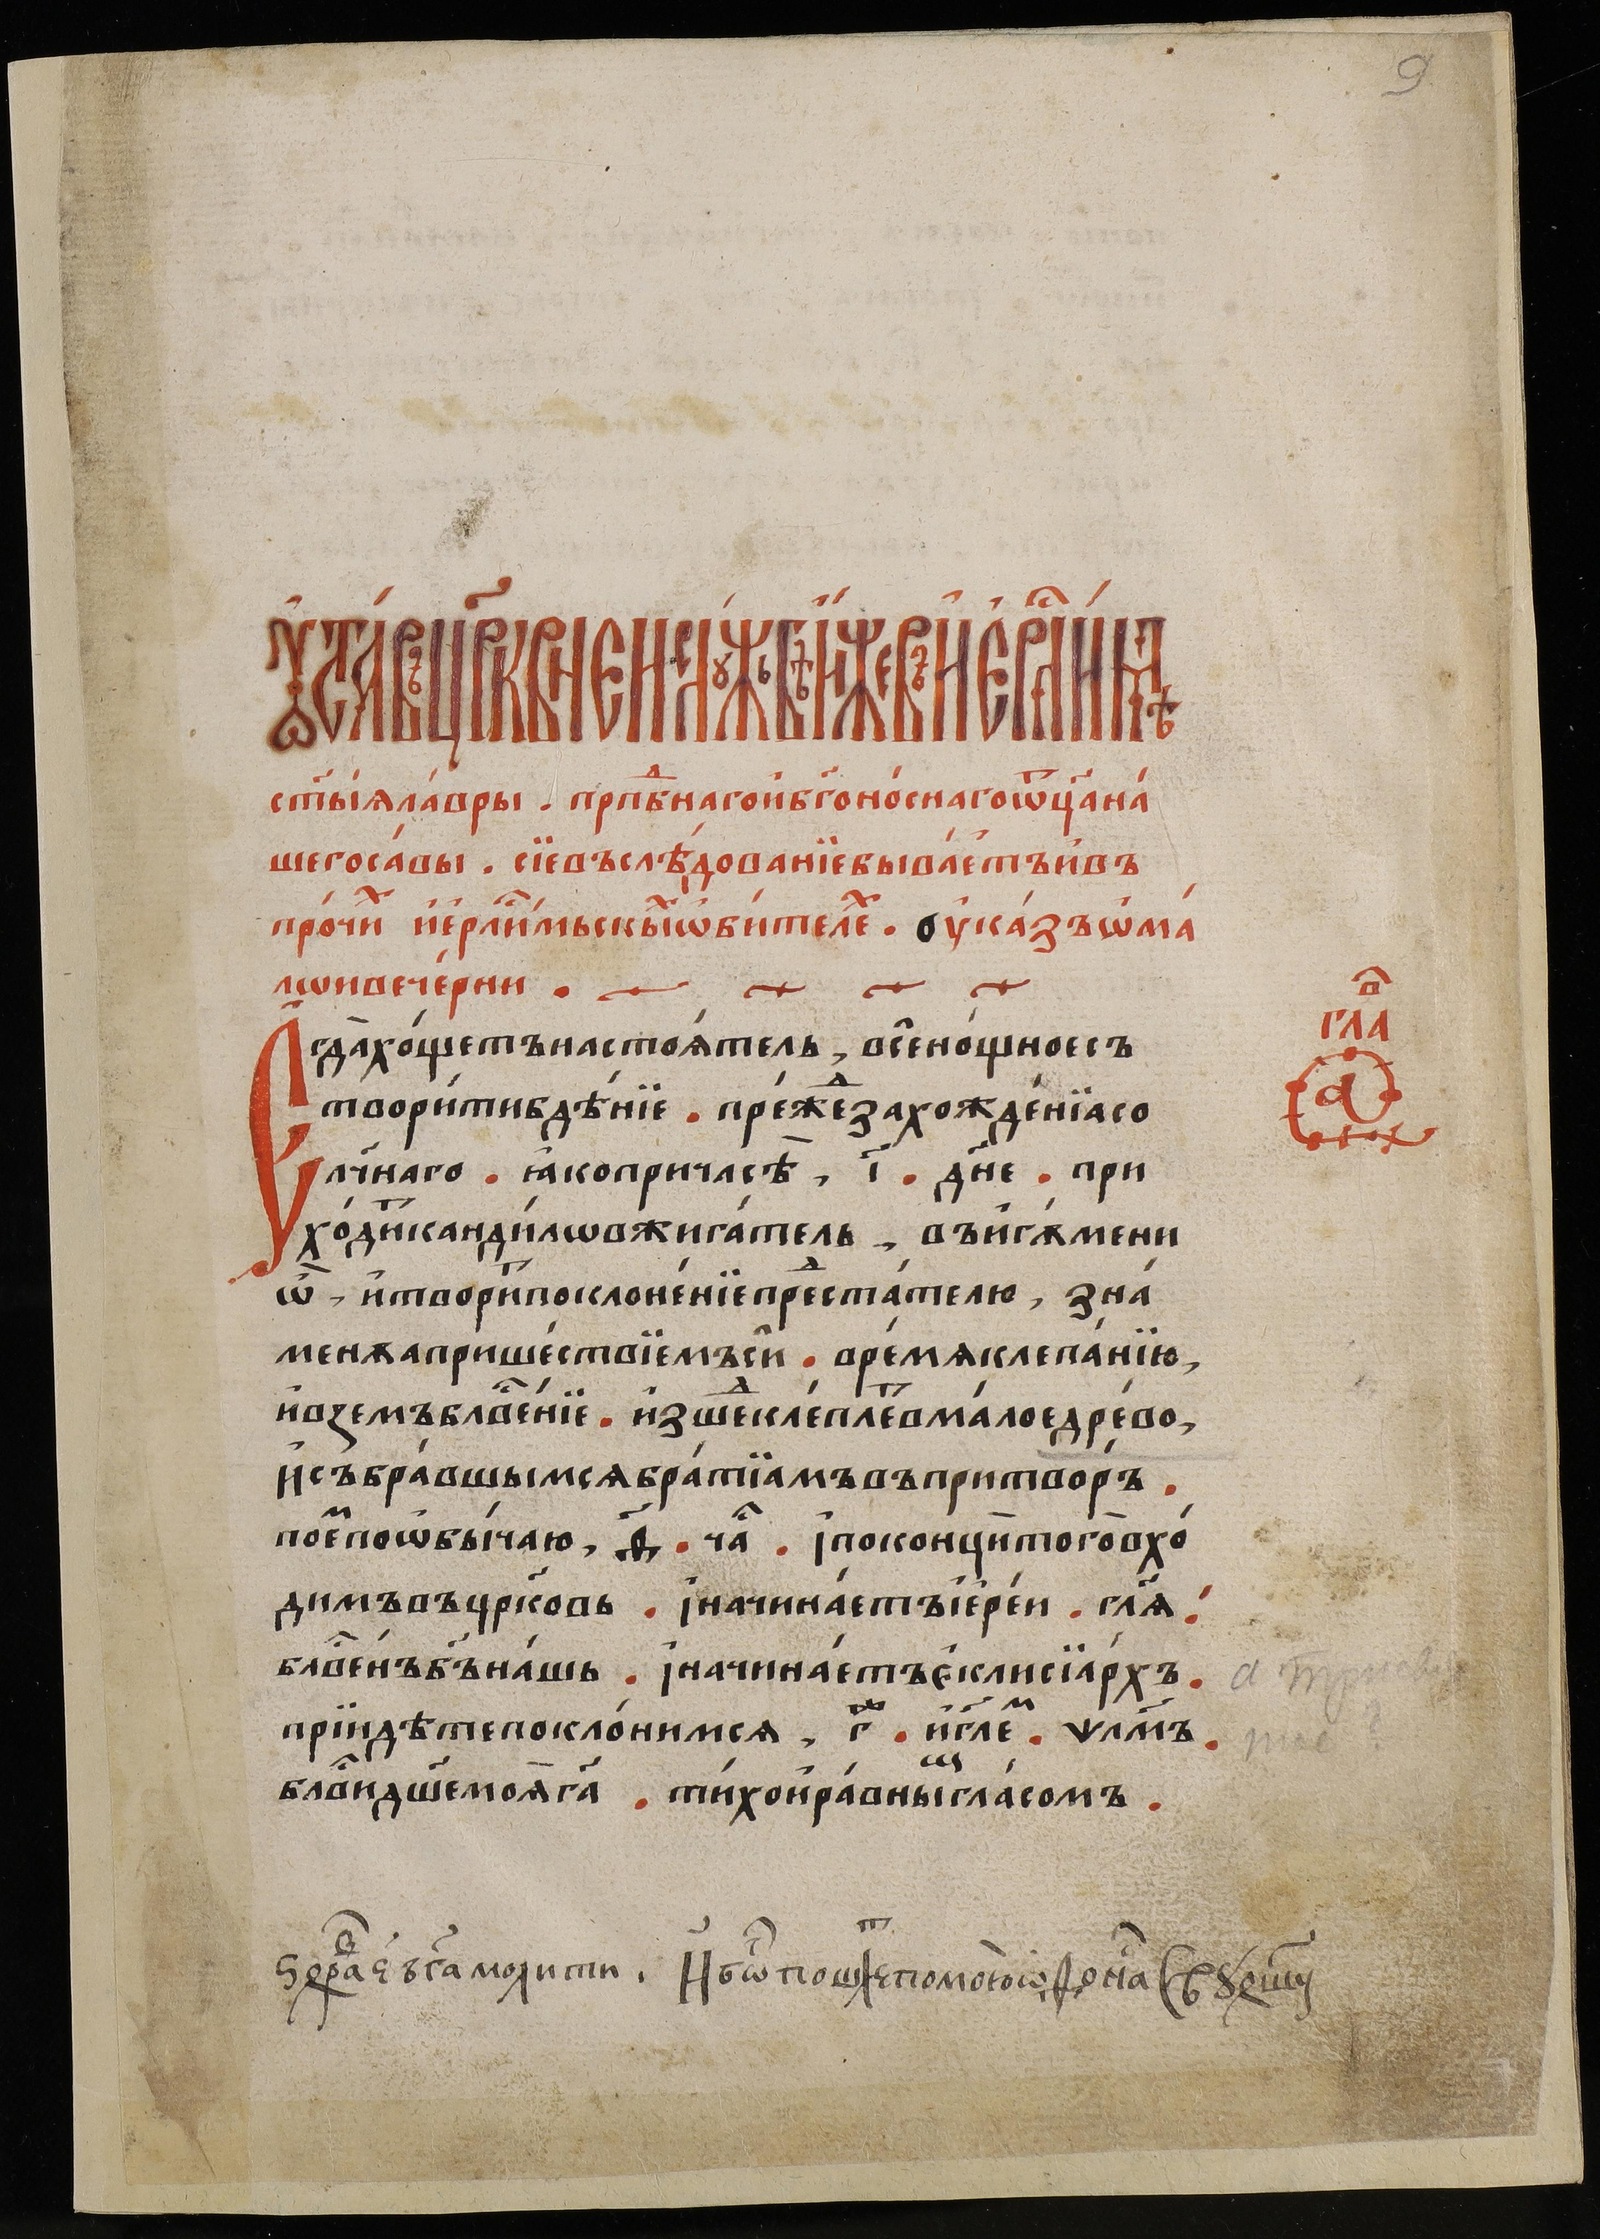 9
ᲂу҆ста́въ цр҃ко́вный службѣ и҆́же въ і҆ерⷭ҇ли́мѣ
ст҃ы́ѧ ла́вры . прпⷣбнаго и҆ бг҃оно́снаго ѿц҃а на́
шего са́вы . сїе въслѣ́дованїе быва́етъ и҆ въ
про́чиⷯ і҆ерⷭ҇ли́мьскыⷯ ѡ҆би́телеⷯ . ᲂука́зъ ѡ҆ ма́
лѡи вече́рни .
гла в҃
а
Є҆гда̀ хо́щетъ настоѧ́тель , всено́щное съ
твори́ти бдѣ́нїе . пре́жⷣе захожде́нїа со
лч҃наго . ꙗ҆́ко при часѣ̀ , і҃ . дн҃е . при
хо́диⷮ кандилѡвжига́тель , въ и҆гѫмени
ѡ҆ⷭ҇ , и҆ твори́ⷮ поклоне́нїе преⷣста́телю , зна́
менѫа прише́ствїемъ си . вре́мѧ клепа́нїю ,
и҆ вꙁемъ блⷭ҇ве́нїе . и҆зшеⷣ кле́плеⷮ в ма́лое дре́во ,
И҆ съ бра́вшымсѧ бра́тїамъ въ притво́ръ .
пое́ⷨ по ѡ҆бы́чаю , ѳ҃ . чаⷭ҇ . і҆ по концѝ того̀ вхо́
димъ въ цр҃ковь . і҆ начина́етъ і҆ере́и . гл҃ѧ .
блⷭ҇ве́нъ бг҃ъ на́шь . і҆ начина́етъ є҆клисїа́рхъ .
прїидѣ́те покло́нимсѧ , г҃ⷤ . и҆ гл҃еⷨ . ѱлⷨ҇ъ .
блⷭ҇ви дш҃е моѧ̀ гⷭ҇а . ти́хо и҆ ра́вныⷨ гла́сомъ .